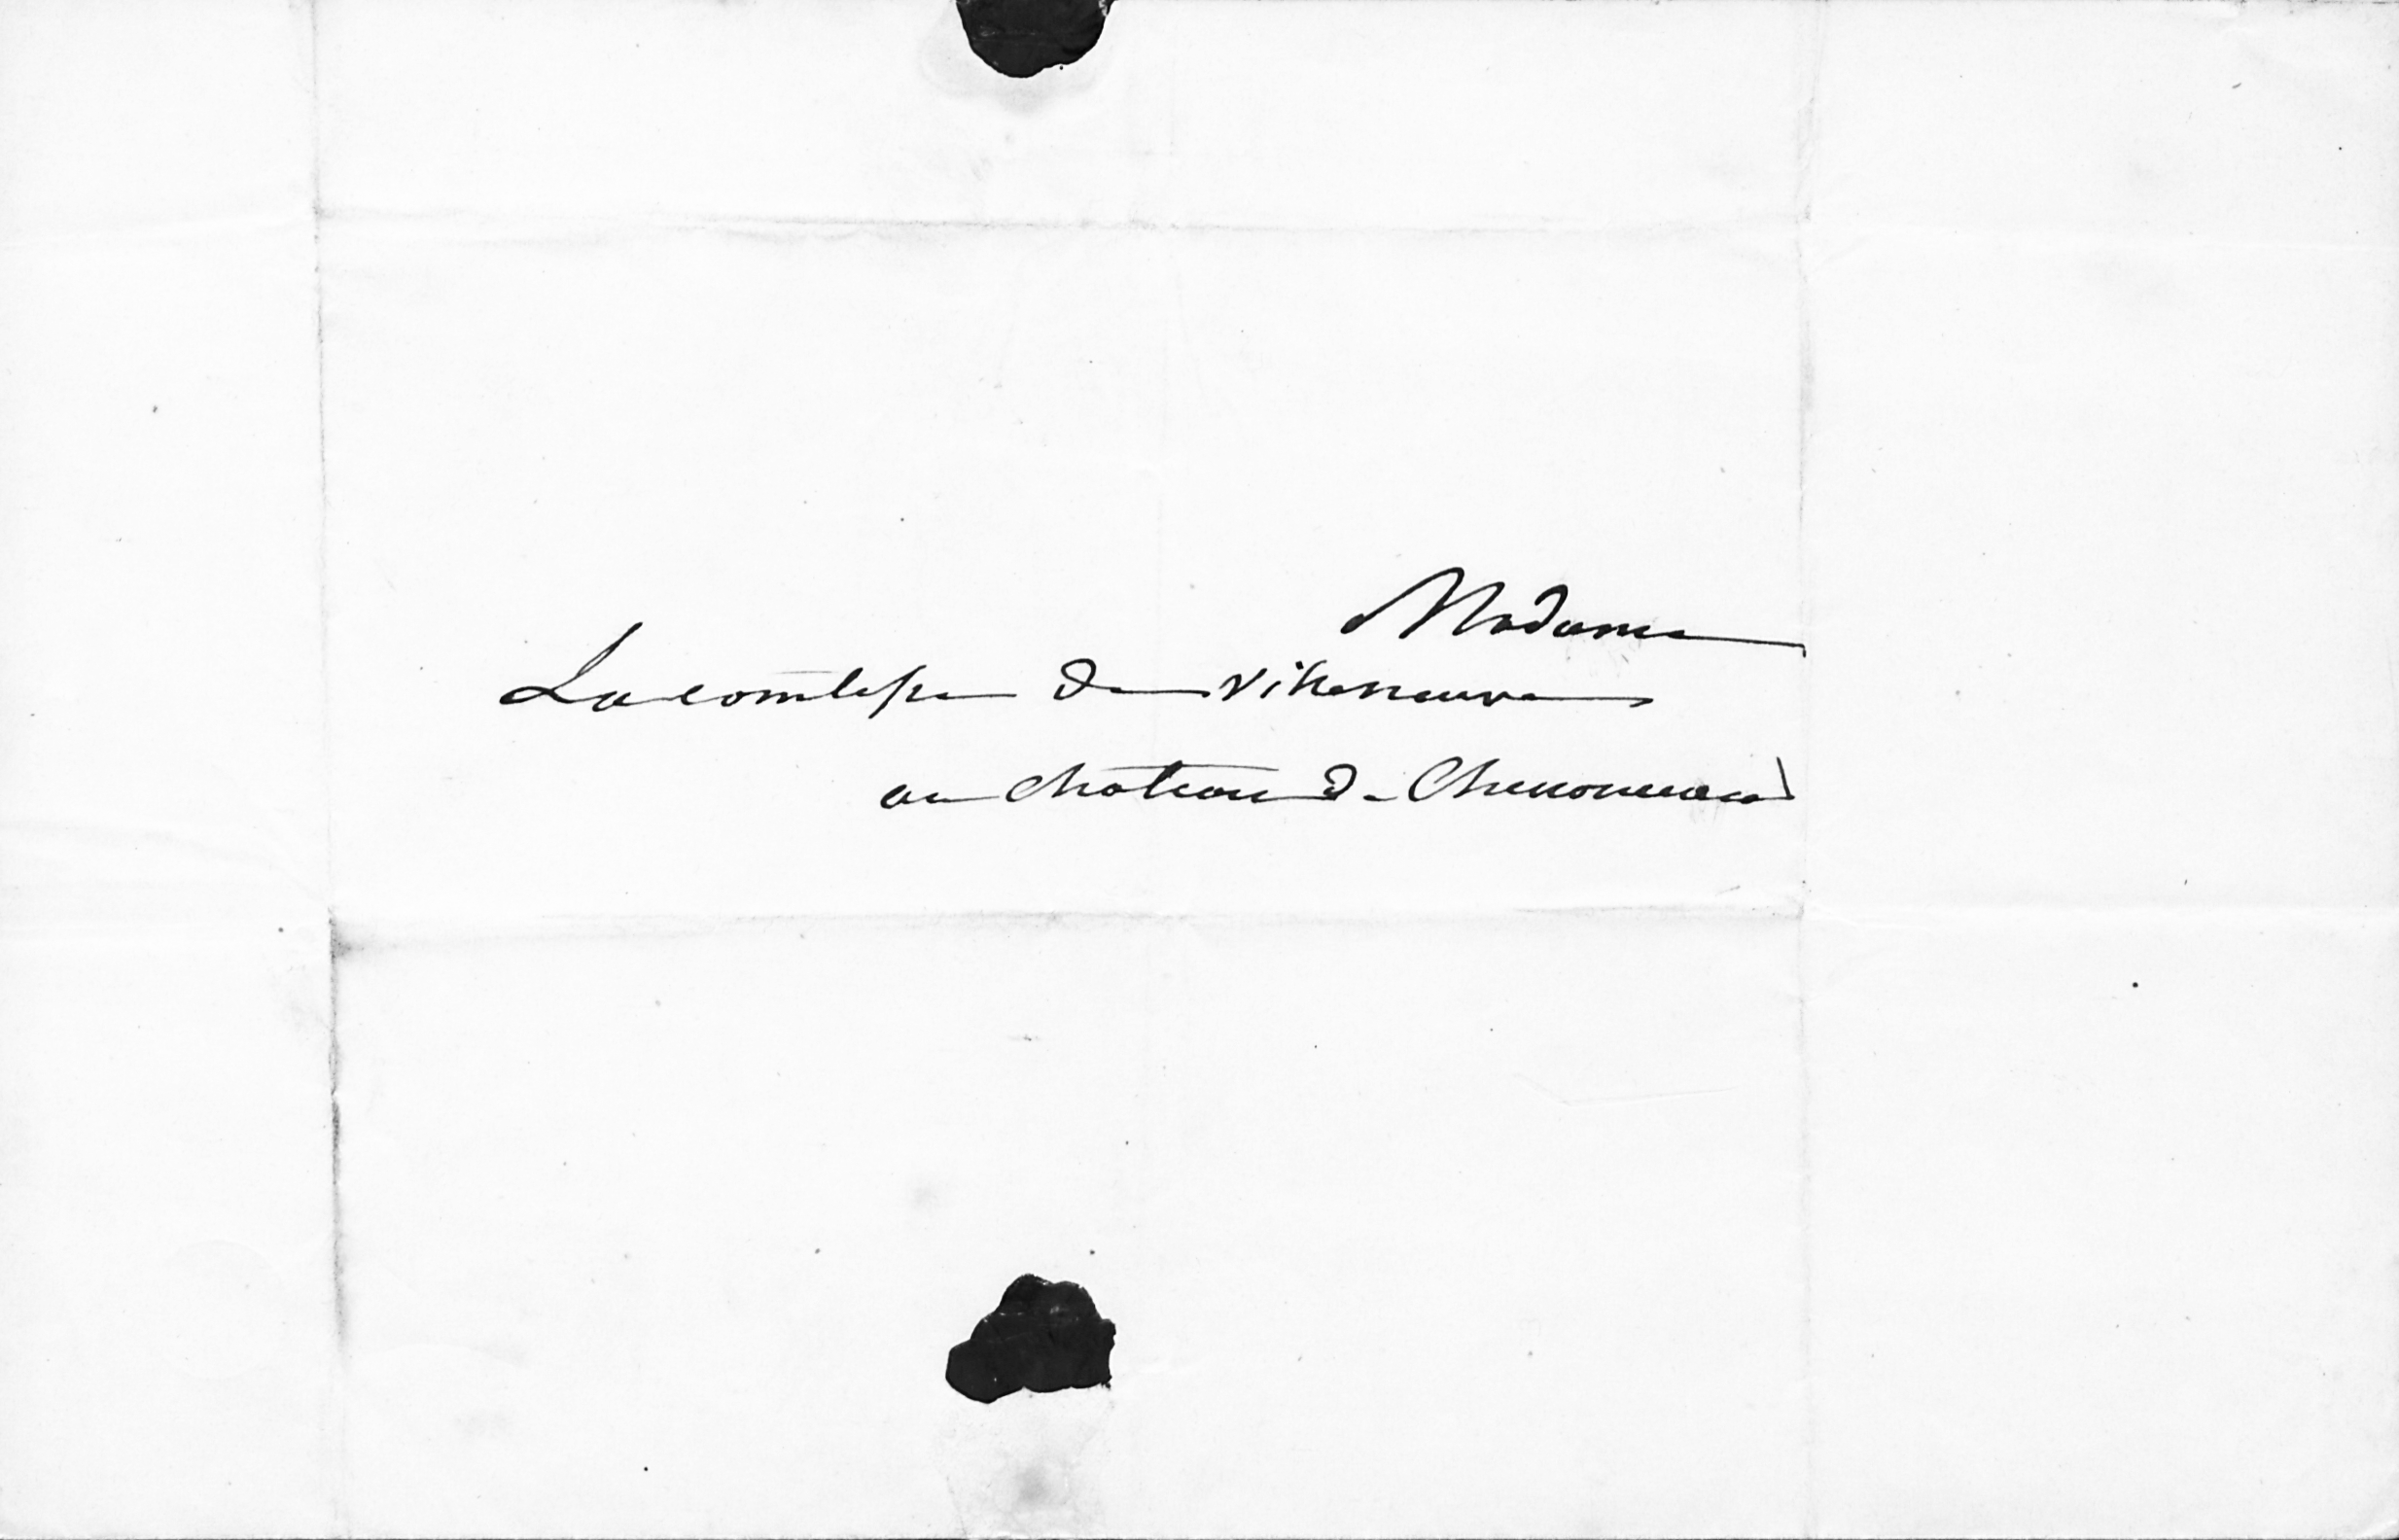 Madame
La comtesse de villeneuve
au chateau de Chenonceau